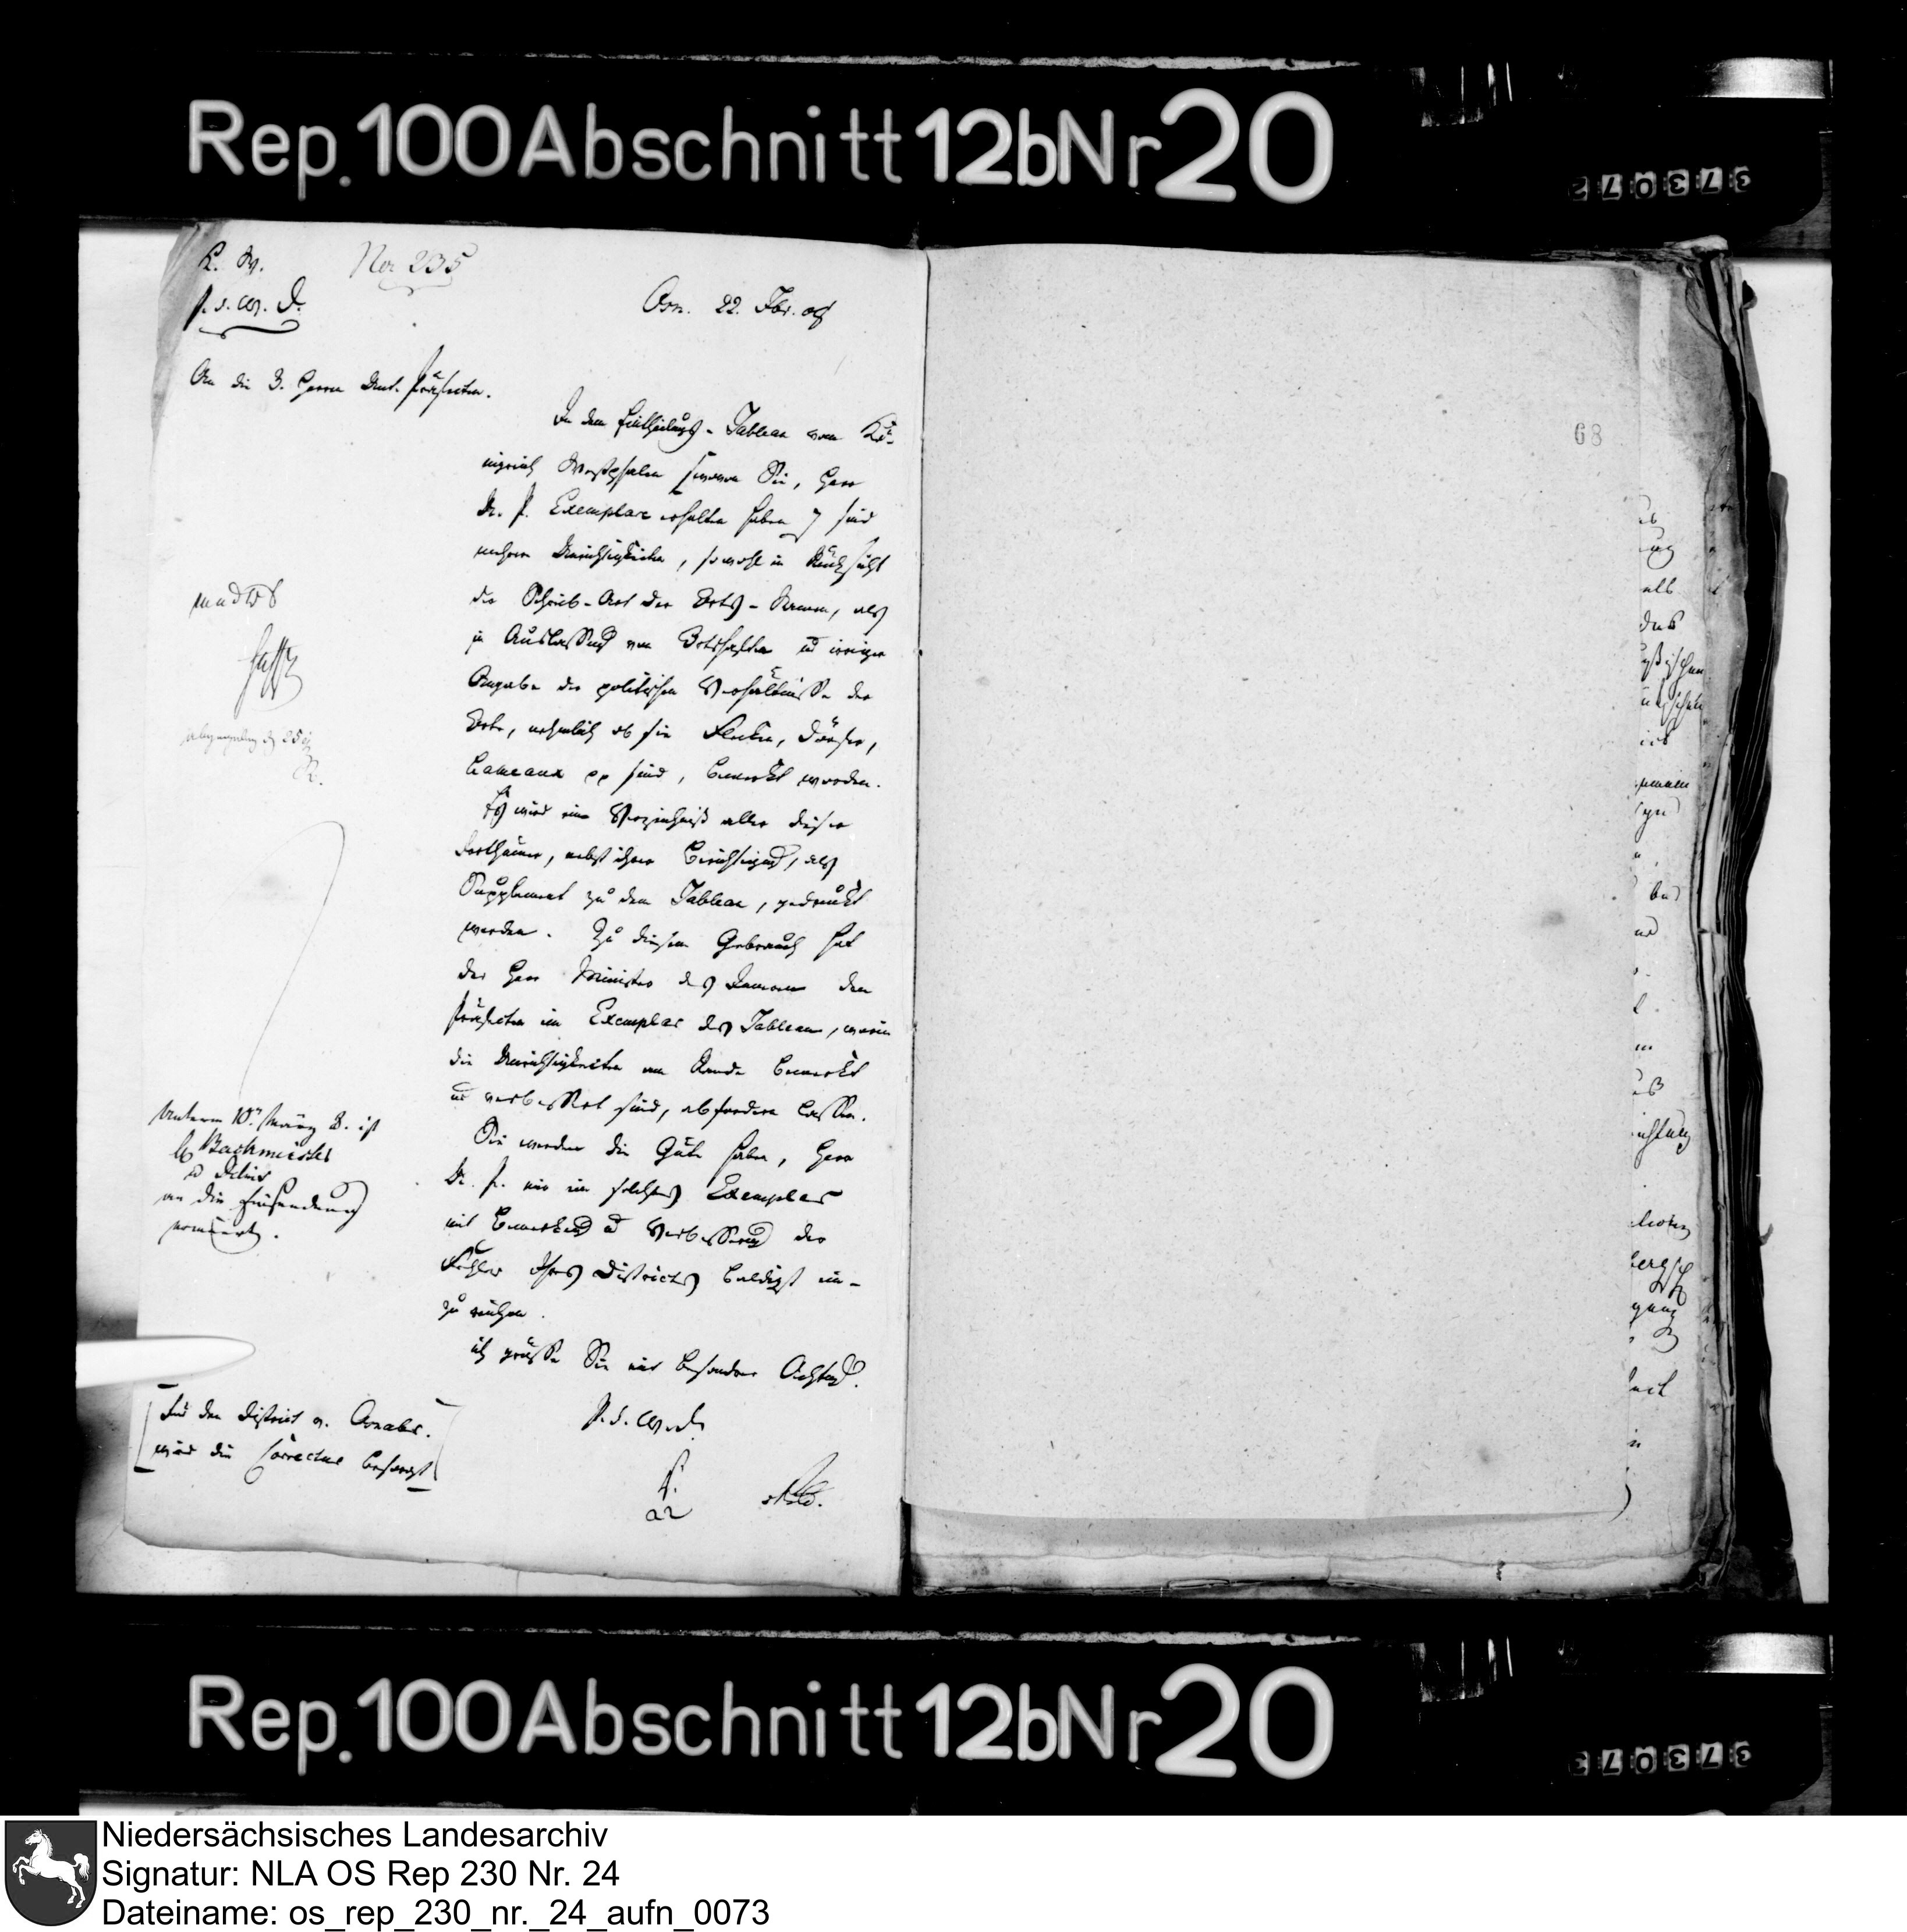 Rep. 100 Abschnitt 12b Nr 20
K. W.
Nor 235
P. d. W. D.
Osn. 22. Fbr. 08
An die 3. Herrn Unt. Präfecten.
In dem Eintheilungs-Tableau vom Kö-
nigreich Westphalen, wovon Sie, Herr
U. P. Exemplare erhalten haben, sind
mehrere Unrichtigkeiten, sowohl in Rücksicht
der Schreib-Art der Orts-Namen, als
in Auslassung von Ortschaften und irriger
Angabe der politischen Verhältnisse der
Orte, nehmlich ob sie Flecken, Dörfer,
hameaux pp sind, bemerkt worden.
Es wird ein Verzeichniß aller dieser
Irrthümer, nebst ihrer Berichtigung, als
Supplement zu dem Tableau, gedruckt
werden. Zu diesem Gebrauch hat
der Herr Minister des Innern den
Präfecten ein Exemplar des Tableau, worin
die Unrichtigkeiten am Rande bemerkt
und verbessert sind, abfordern lassen.
Sie werden die Güte haben, Herr
U. P. mir ein solches Exemplar
mit Bemerkung und Verbesserung der
Fehler Ihres Districts baldigst ein-
zureichen.
ich grüsse Sie mit besonderer Achtung.
P. d. W. D.
mund
abgegangen d. 25
R.
Unterm 10n März 8. ist
H. Bachmeister
u Delius
an die Einsendung
erinnert.
Für den District v. Osnabr.
wird die Correctur besorgt
68
Rep. 100 Abschnitt 12b Nr 20
Niedersächsisches Landesarchiv
Signatur: NLA OS Rep 230 Nr. 24
Dateiname: os_rep_230_nr._24_aufn_0073